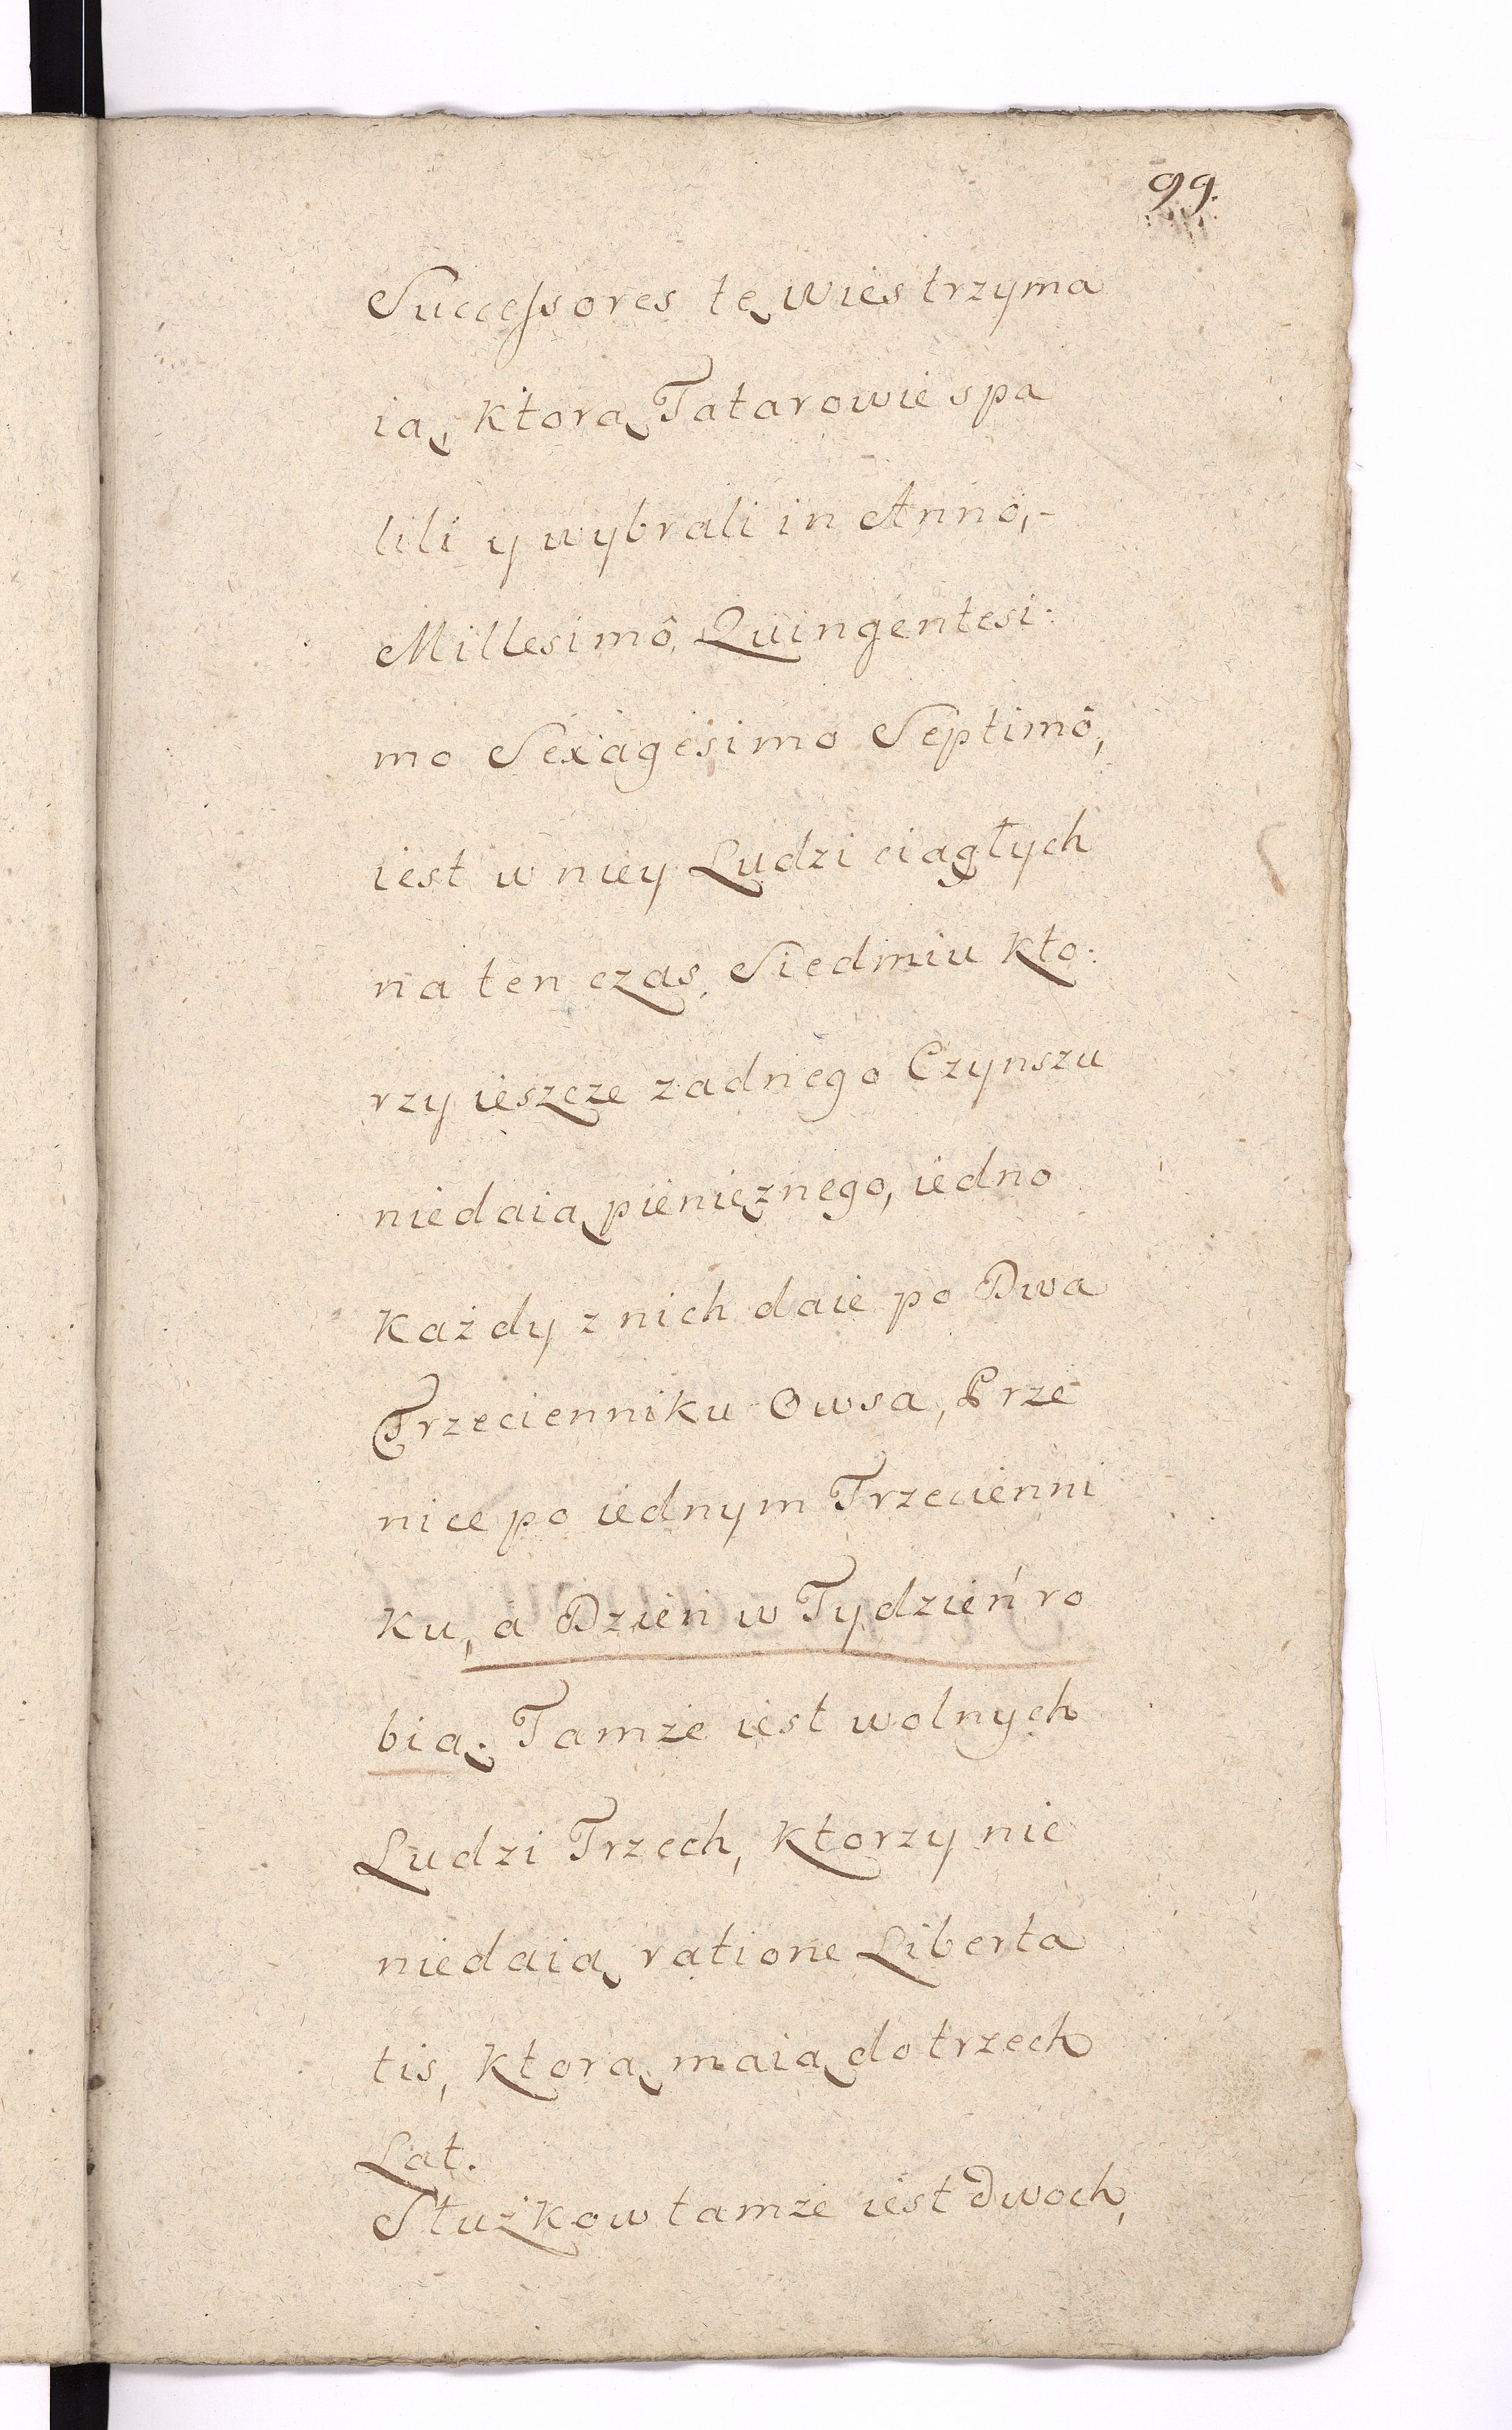 99.
Successores tę wies trzyma
ią, ktorą Tatarowie spa
lili y wybrali in Anno,-
Millesimô Quingentesi:
mo Sexagesimo Septimô,
iest w niey Ludzi ciągłych
na ten czas Siedmiu kto:
rzy ieszcze zadnego Czynszu
niedaią pienięznego, iedno
każdy z nich daie po Dwa
Trzecienniku Owsa, Prze
nice po iednym Trzecienni
ku, a Dzien w Tydzień ro
bią. Tamze iest wolnych
Ludzi Trzech, ktorzy nic
niedaią ratione Liberta
tis, ktorą maią do trzech
Lat.
Służkow tamze iest dwoch,